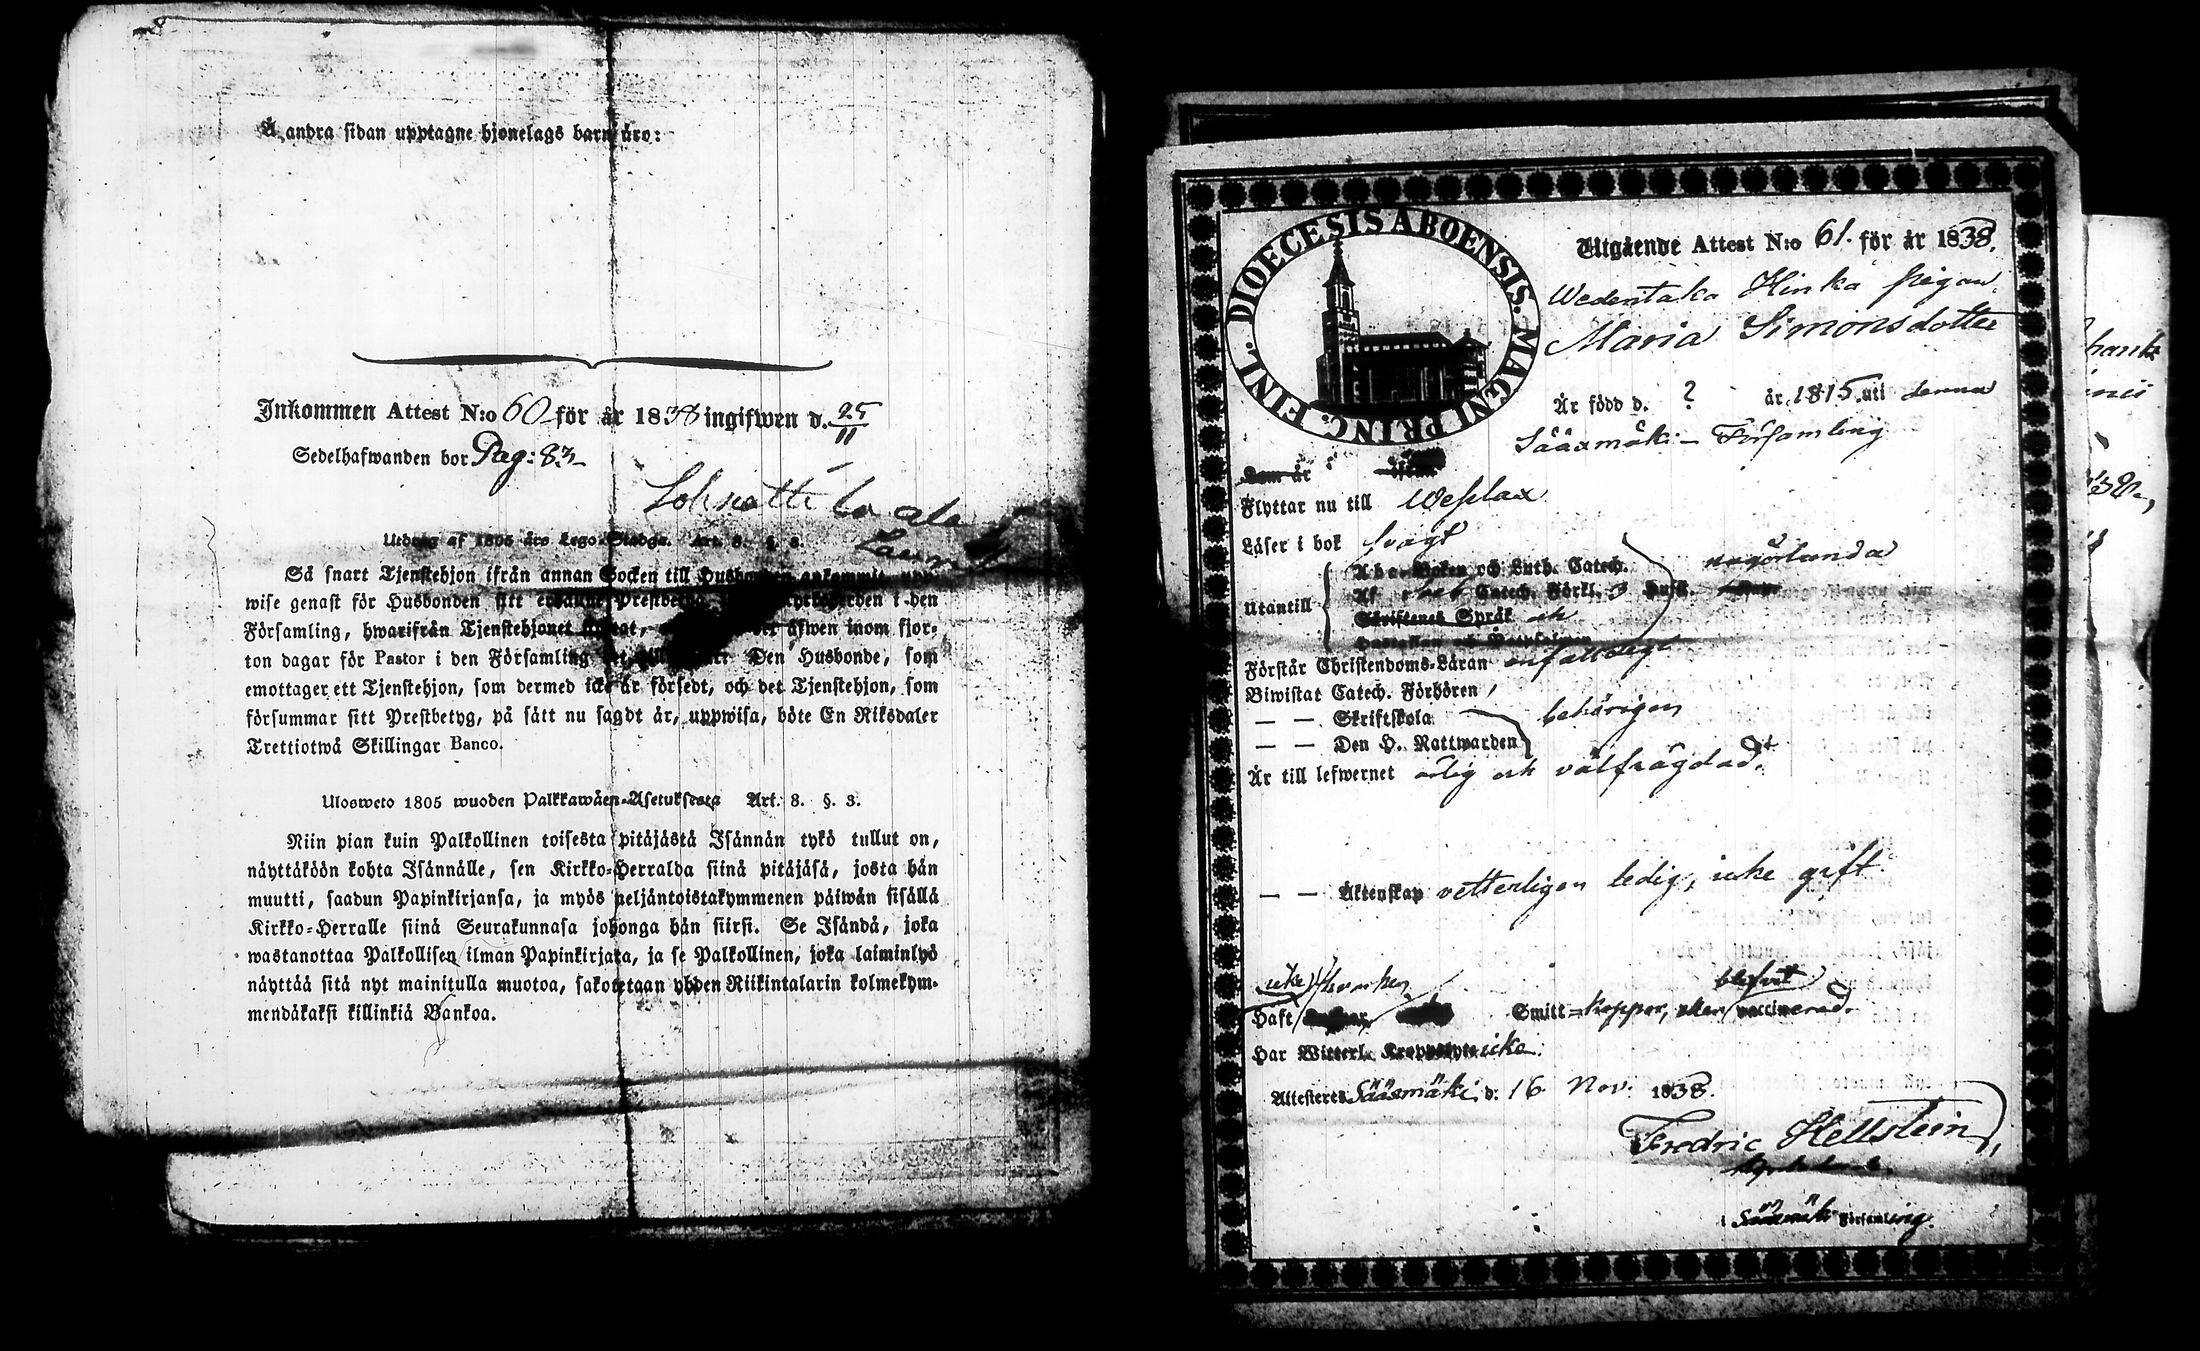 Å andra sidan upptagne hjonelags barn äro:
Inkommen Attest N:o 60 för år 1838 ingifwen d. 25/11
Sedelhafwanden bor Pag: 83
Utdrag af 1805 års Lego-Stadga. Art. 8. §. 3.
Så snart Tjenstehjon ifrån annan Socken till Husbonden ankommit, upp-
wise genast för Husbonden sitt Prestbetyg, i den
Församling, hwarifrån Tjenstehjonet äfwen inom fjor-
ton dagar för Pastor i den Församling Den Husbonde, som
emottager ett Tjenstehjon, som dermed icke är försedt, och det Tjenstehjon, som
försummar sitt Prestbetyg, på sätt nu sagdt är, uppwisa, böte En Riksdaler
Trettiotwå Skillingar Banco.
Ulosweto 1805 wuoden Palkkawäen-Asetuksesta Art. 8. §. 3.
Niin pian kuin Palkollinen toisesta pitäjästä Isännän tykö tullut on,
näyttäköön kohta Isännälle, sen Kirkko-Herralda siinä pitäjäsä, josta hän
muutti, saadun Papinkirjansa, ja myös neljäntoistakymmenen päiwän sisällä
Kirkko-Herralle siinä Seurakunnasa johonga hän siirsi. Se Isändä, joka
wastanottaa Palkollisen ilman Papinkirjata, ja se Palkollinen, joka laiminlyö
näyttää sitä nyt mainitulla muotoa, sakotetaan yhden Riikintalarin kolmekym-
mendäkaksi killinkiä Bankoa.
DIOECESIS ABOENSIS. MAGNI PRINC. FINL.
Utgående Attest N:o 61. för år 1838.
Wedentaka Hinka pigan
Maria Simonsdotter
Är född d. ? år 1815 uti denna
Sääxmäki Församling
Som är
Flyttar nu till Wesilax
Läser i bok svagt
Utantill
A b c-Boken och Luth. Catech.
Catech. Förkl. Hust.
Skriftenes Språk
någorlunda
Förstår Christendoms-Läran enfaldeligt
Biwistat Catech. Förhören
— — Skriftskola behörigen
— — Den H. Nattwarden
Är till lefwernet ärlig och välfrägdad.
— — Äktenskap vetterligen ledig, icke gift.
icke hvarken
blifvit
Haft Smitt-koppor, eller vaccinerad.
Har Witterl. Kroppslyte icke.
Attesteres Sääxmäki d. 16 Nov. 1838.
Fredric Hellstein
i Sääxmäki Församling.